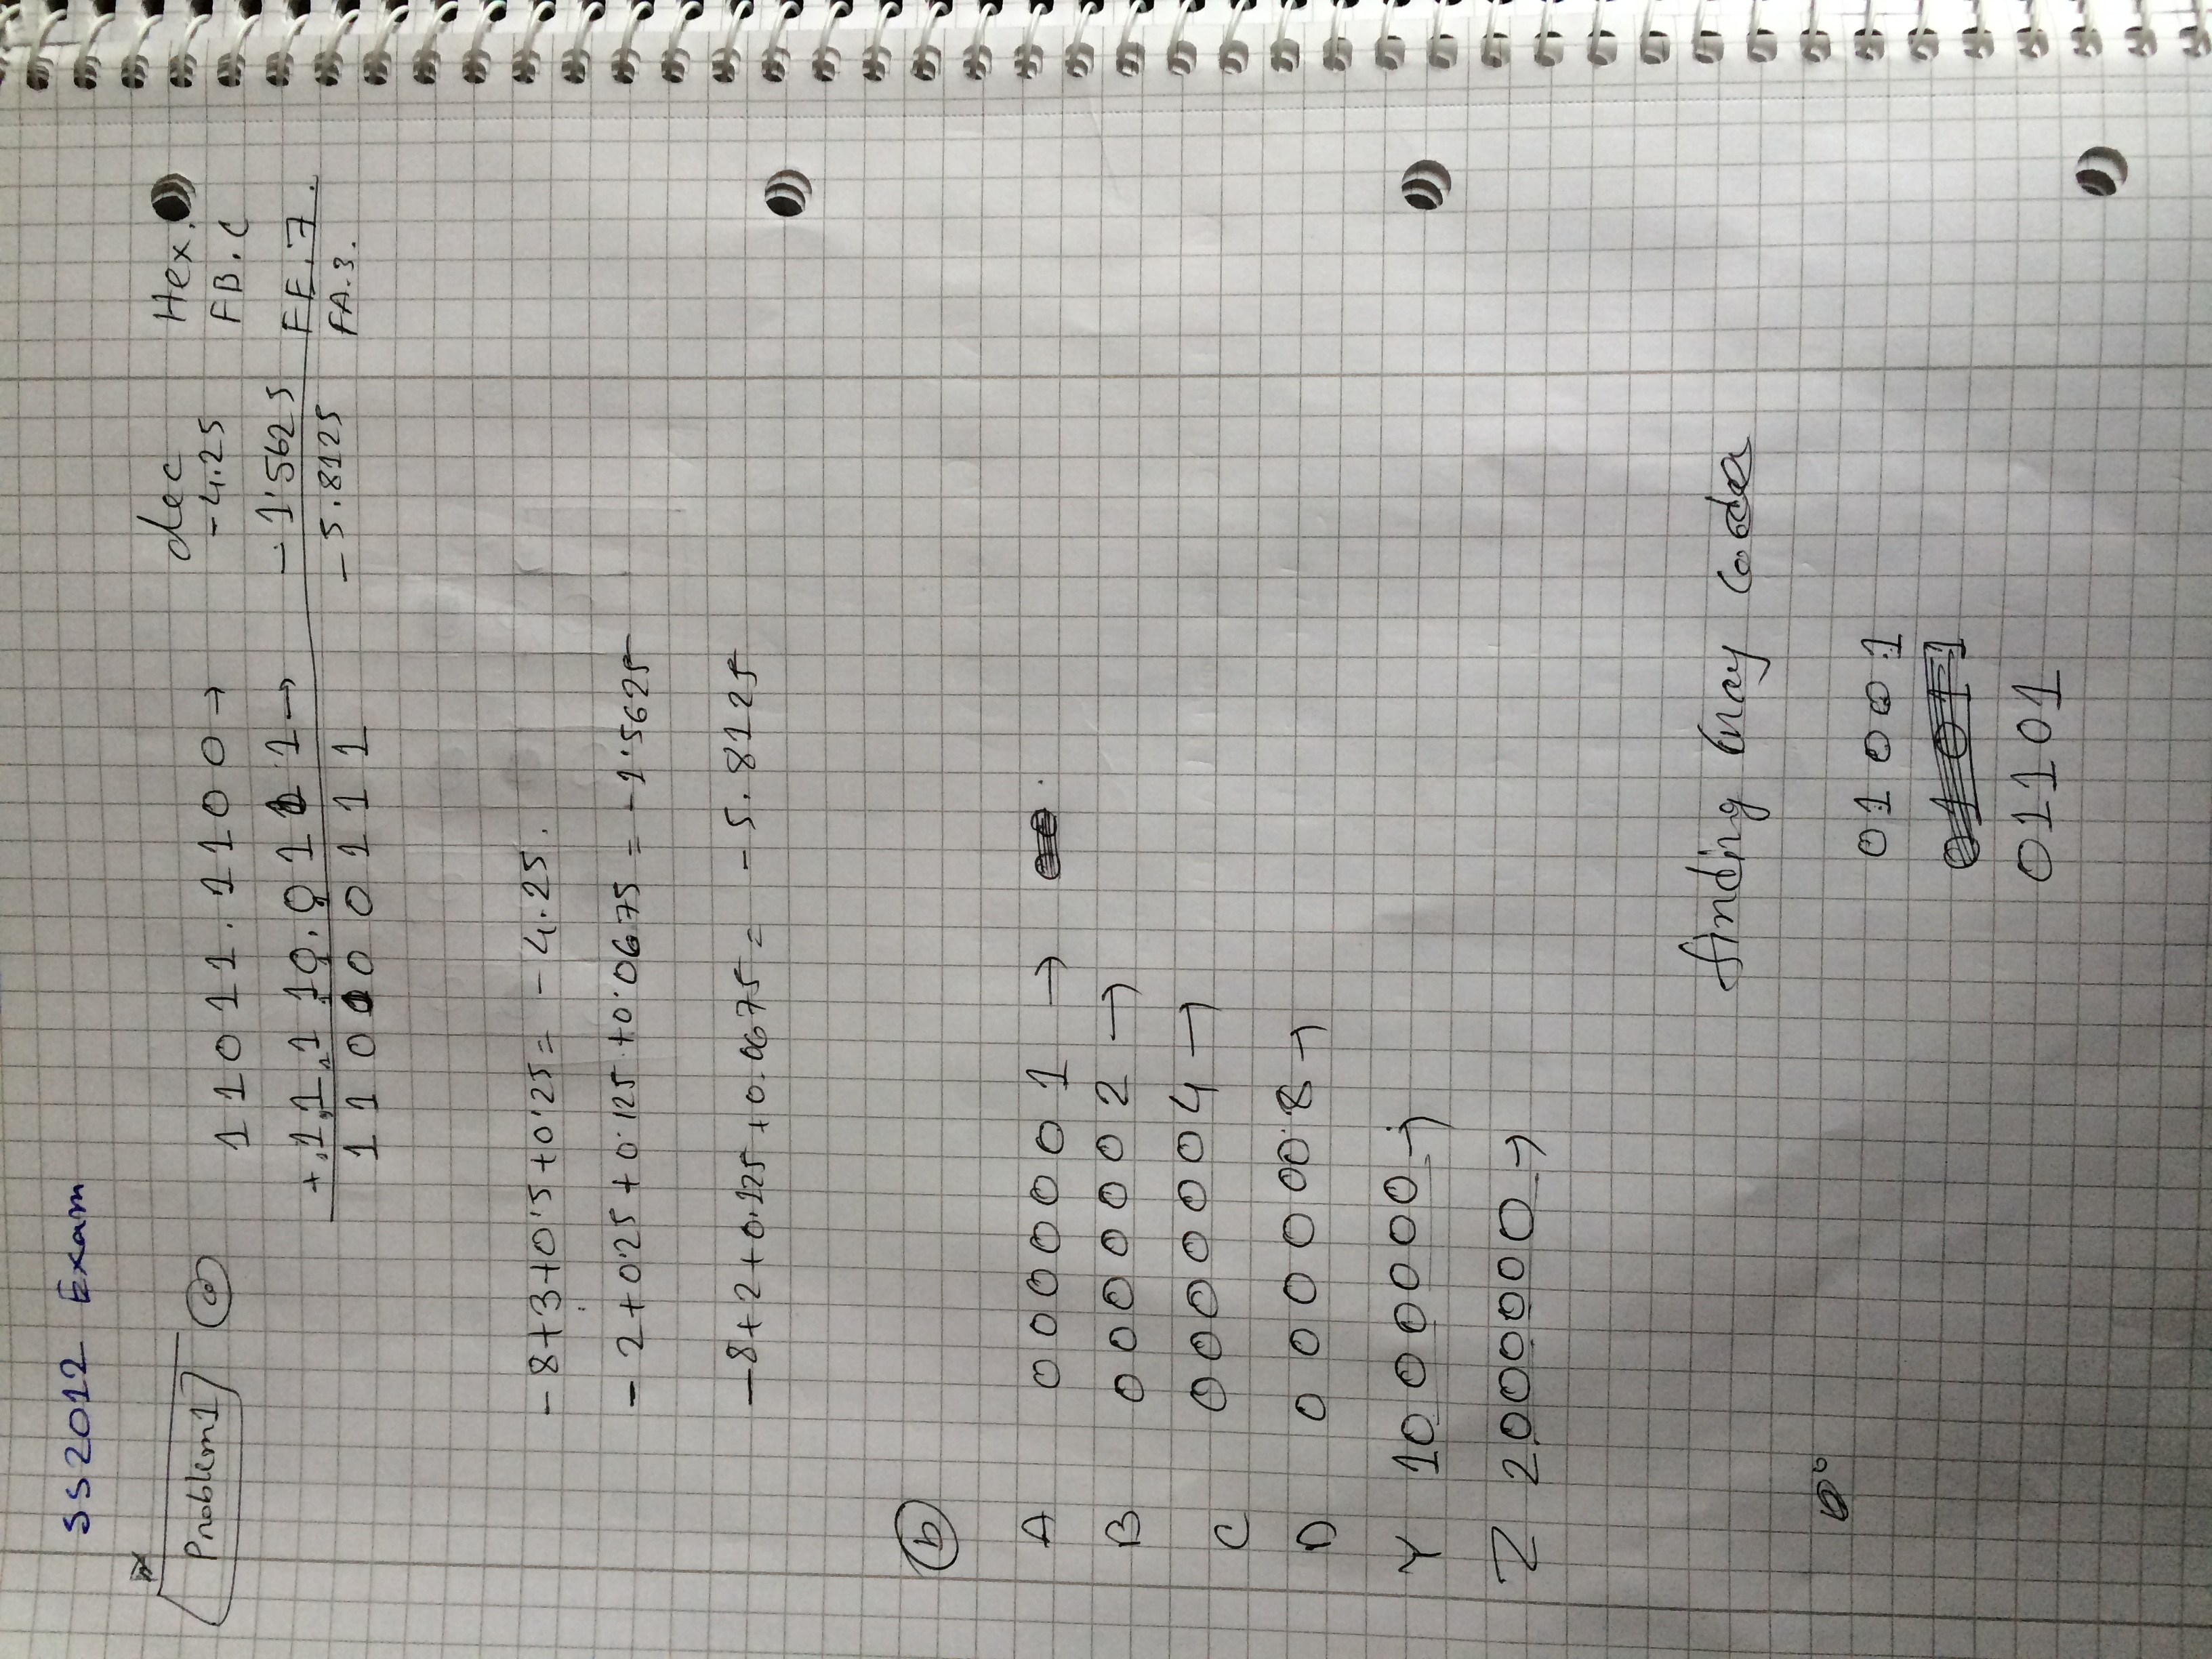 SS2012 Exam
dec Hex.
Problem1 a 11011.1100→ -4.25 FB.C
+11110.0111→ -1.5625 FE.7.
110100111 -5.8125 FA.3.
-8+3+0.5+0.25= -4.25.
-2+0.25+0.125+0.0675 = -1.5625
-8+2+0.125+0.0675 = -5.8125
b
A 0000001 →
B 0000002 →
C 0000004 →
D 0000008 →
Y 1000000 →
Z 2000000 →
finding Gray code
01001
01011
01101